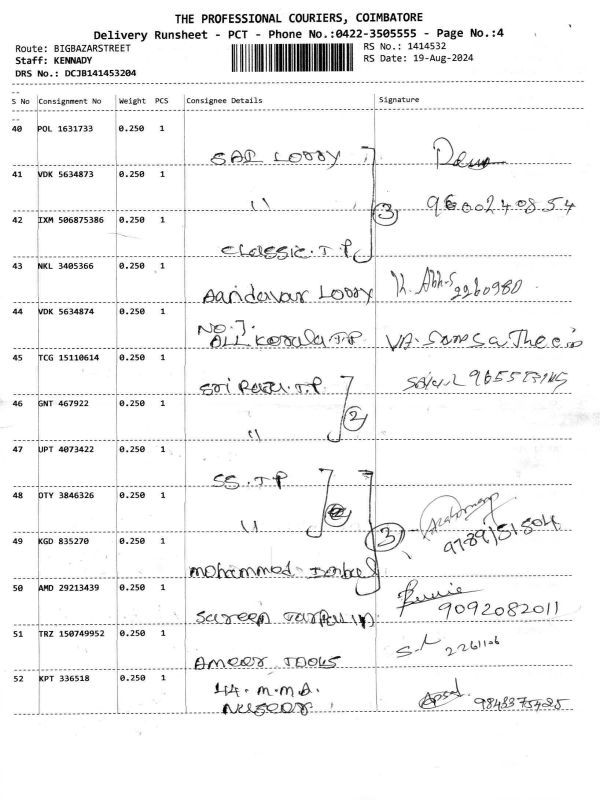 THE PROFESSIONAL COURIERS, COIMBATORE
Delivery Runsheet - PCT - Phone No.:0422-3505555 - Page No.:4
Route: BIGBAZARSTREET
RS No.: 1414532
Staff: KENNADY
RS Date: 19-Aug-2024
DRS No.: DCJB141453204
S No Consignment No Weight PCS Consignee Details Signature
40 POL 1631733 0.250 1
SAI LORRY
41 VDK 5634873 0.250 1
" 3
42 IXM 506875386 0.250 1
CLASSIC.T.P
43 NKL 3405366 0.250 1
Aandavar LORRY 2260980
44 VDK 5634874 0.250 1
NO.7.
ALL Kerala T.P
45 TCG 15110614 0.250 1
Sri Raja.T.P
46 GNT 467922 0.250 1
" 2
47 UPT 4073422 0.250 1
SS.T.P
48 DTY 3846326 0.250 1
"
49 KGD 835270 0.250 1 3
mohammed
50 AMD 29213439 0.250 1
9092082011
51 TRZ 150749952 0.250 1
2261106
Ameer Tools
52 KPT 336518 0.250 1
44.M.M.A.